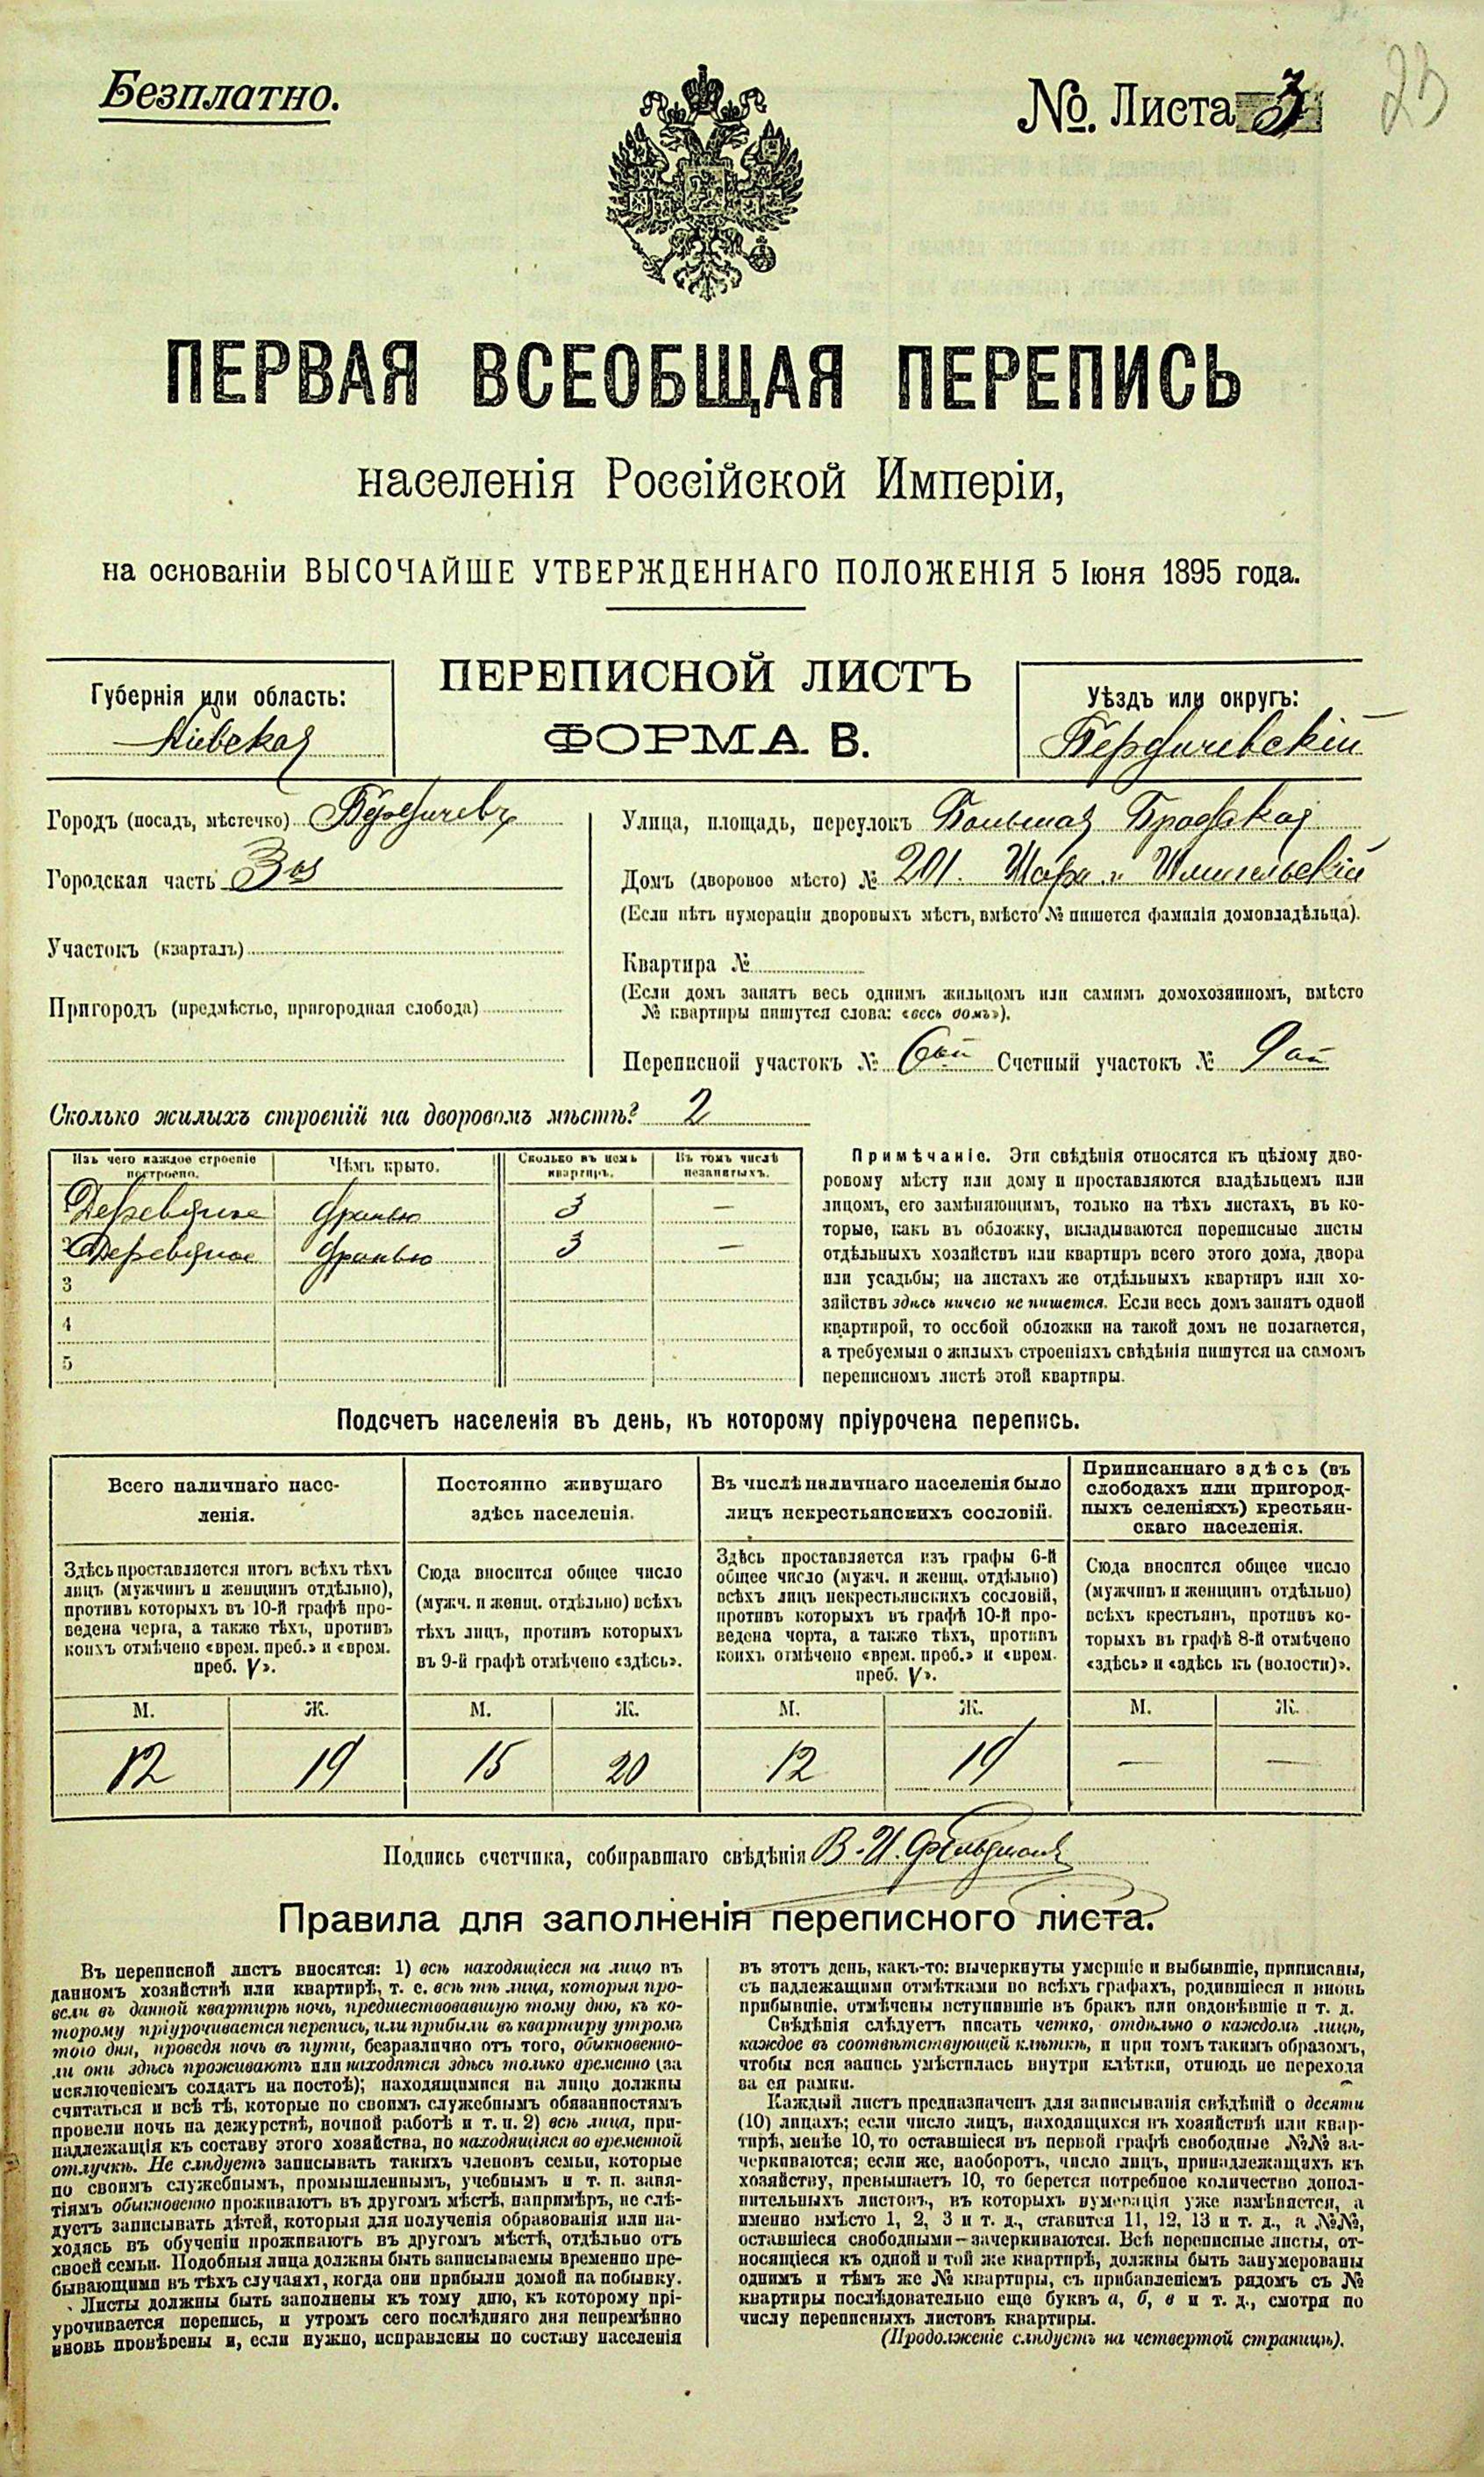 Безплатно.
№. Листа 3
23
ПЕРВАЯ ВСЕОБЩАЯ ПЕРЕПИСЬ
населенія Россійской Имперіи,
на основаніи ВЫСОЧАЙШЕ УТВЕРЖДЕННАГО ПОЛОЖЕНІЯ 5 Іюня 1895 года.
Губернія или область:
Кіевская
ПЕРЕПИСНОЙ ЛИСТЪ
ФОРМА В.
Уѣздъ или округъ:
Бердичевскій
Городъ (посадъ, мѣстечко) Бердичевъ
Городская часть 3ья
Участокъ (кварталъ)
Пригородъ (предмѣстье, пригородная слобода)
Улица, площадь, переулокъ Большая Бродская
Домъ (дворовое мѣсто) № 201.
(Если нѣтъ нумераціи дворовыхъ мѣстъ, вмѣсто № пишется фамилія домовладѣльца).
Квартира №
(Если домъ занятъ весь однимъ жильцомъ или самимъ домохозяиномъ, вмѣсто
№ квартиры пишутся слова: «весь домъ»).
Переписной участокъ № 6ой Счетный участокъ № 9ый
Сколько жилыхъ строеній на дворовомъ мѣстѣ? 2
Изъ чего каждое строеніе построено.
Чѣмъ крыто.
Сколько въ немъ квартиръ.
Въ томъ числѣ незанятыхъ.
Деревянное дранью 3 —
2 Деревянное дранью 3 —
3
4
5
Примѣчаніе. Эти свѣдѣнія относятся къ цѣлому дво-
ровому мѣсту или дому и проставляются владѣльцемъ или
лицомъ, его замѣняющимъ, только на тѣхъ листахъ, въ ко-
торые, какъ въ обложку, вкладываются переписные листы
отдѣльныхъ хозяйствъ или квартиръ всего этого дома, двора
или усадьбы; на листахъ же отдѣльныхъ квартиръ или хо-
зяйствъ здѣсь ничего не пишется. Если весь домъ занятъ одной
квартирой, то особой обложки на такой домъ не полагается,
а требуемыя о жилыхъ строеніяхъ свѣдѣнія пишутся на самомъ
переписномъ листѣ этой квартиры.
Подсчетъ населенія въ день, къ которому пріурочена перепись.
Всего наличнаго насе-
ленія.
Здѣсь проставляется итогъ всѣхъ тѣхъ
лицъ (мужчинъ и женщинъ отдѣльно),
противъ которыхъ въ 10-й графѣ про-
ведена черта, а также тѣхъ, противъ
коихъ отмѣчено «врем. преб.» и «врем.
преб. V».
М. Ж.
12 19
Постоянно живущаго
здѣсь населенія.
Сюда вносится общее число
(мужч. и женщ. отдѣльно) всѣхъ
тѣхъ лицъ, противъ которыхъ
въ 9-й графѣ отмѣчено «здѣсь».
М. Ж.
15 20
Въ числѣ наличнаго населенія было
лицъ некрестьянскихъ сословій.
Здѣсь проставляется изъ графы 6-й
общее число (мужч. и женщ. отдѣльно)
всѣхъ лицъ некрестьянскихъ сословій,
противъ которыхъ въ графѣ 10-й про-
ведена черта, а также тѣхъ, противъ
коихъ отмѣчено «врем. преб.» и «врем.
преб. V».
М. Ж.
12 19
Приписаннаго здѣсь (въ
слободахъ или пригород-
ныхъ селеніяхъ) крестьян-
скаго населенія.
Сюда вносится общее число
(мужчинъ и женщинъ отдѣльно)
всѣхъ крестьянъ, противъ ко-
торыхъ въ графѣ 8-й отмѣчено
«здѣсь» и «здѣсь къ (волости)».
М. Ж.
— —
Подпись счетчика, собиравшаго свѣдѣнія В. И. Фельдманъ
Правила для заполненія переписного листа.
Въ переписной листъ вносятся: 1) всѣ находящіеся на лицо въ
данномъ хозяйствѣ или квартирѣ, т. е. всѣ тѣ лица, которыя про-
вели въ данной квартирѣ ночь, предшествовавшую тому дню, къ ко-
торому пріурочивается перепись, или прибыли въ квартиру утромъ
того дня, проведя ночь въ пути, безразлично отъ того, обыкновенно-
ли они здѣсь проживаютъ или находятся здѣсь только временно (за
исключеніемъ солдатъ на постоѣ); находящимися на лицо должны
считаться и всѣ тѣ, которые по своимъ служебнымъ обязанностямъ
провели ночь на дежурствѣ, ночной работѣ и т. п. 2) всѣ лица, при-
надлежащія къ составу этого хозяйства, но находящіяся во временной
отлучкѣ. Не слѣдуетъ записывать такихъ членовъ семьи, которые
по своимъ служебнымъ, промышленнымъ, учебнымъ и т. п. заня-
тіямъ обыкновенно проживаютъ въ другомъ мѣстѣ, напримѣръ, не слѣ-
дуетъ записывать дѣтей, которыя для полученія образованія или на-
ходясь въ обученіи проживаютъ въ другомъ мѣстѣ, отдѣльно отъ
своей семьи. Подобныя лица должны быть записываемы временно пре-
бывающими въ тѣхъ случаяхъ, когда они прибыли домой на побывку.
Листы должны быть заполнены къ тому дню, къ которому прі-
урочивается перепись, и утромъ сего послѣдняго дня непремѣнно
вновь провѣрены и, если нужно, исправлены по составу населенія
въ этотъ день, какъ-то: вычеркнуты умершіе и выбывшіе, приписаны,
съ надлежащими отмѣтками во всѣхъ графахъ, родившіеся и вновь
прибывшіе, отмѣчены вступившіе въ бракъ или овдовѣвшіе и т. д.
Свѣдѣнія слѣдуетъ писать четко, отдѣльно о каждомъ лицѣ,
каждое въ соотвѣтствующей клѣткѣ, и при томъ такимъ образомъ,
чтобы вся запись умѣстилась внутри клѣтки, отнюдь не переходя
за ея рамки.
Каждый листъ предназначенъ для записыванія свѣдѣній о десяти
(10) лицахъ; если число лицъ, находящихся въ хозяйствѣ или квар-
тирѣ, менѣе 10, то оставшіеся въ первой графѣ свободные №№ за-
черкиваются; если же, наоборотъ, число лицъ, принадлежащихъ къ
хозяйству, превышаетъ 10, то берется потребное количество допол-
нительныхъ листовъ, въ которыхъ нумерація уже измѣняется, а
именно вмѣсто 1, 2, 3 и т. д., ставится 11, 12, 13 и т. д., а №№,
оставшіеся свободными—зачеркиваются. Всѣ переписные листы, от-
носящіеся къ одной и той же квартирѣ, должны быть занумерованы
однимъ и тѣмъ же № квартиры, съ прибавленіемъ рядомъ съ №
квартиры послѣдовательно еще буквъ а, б, в и т. д., смотря по
числу переписныхъ листовъ квартиры.
(Продолженіе слѣдуетъ на четвертой страницѣ).